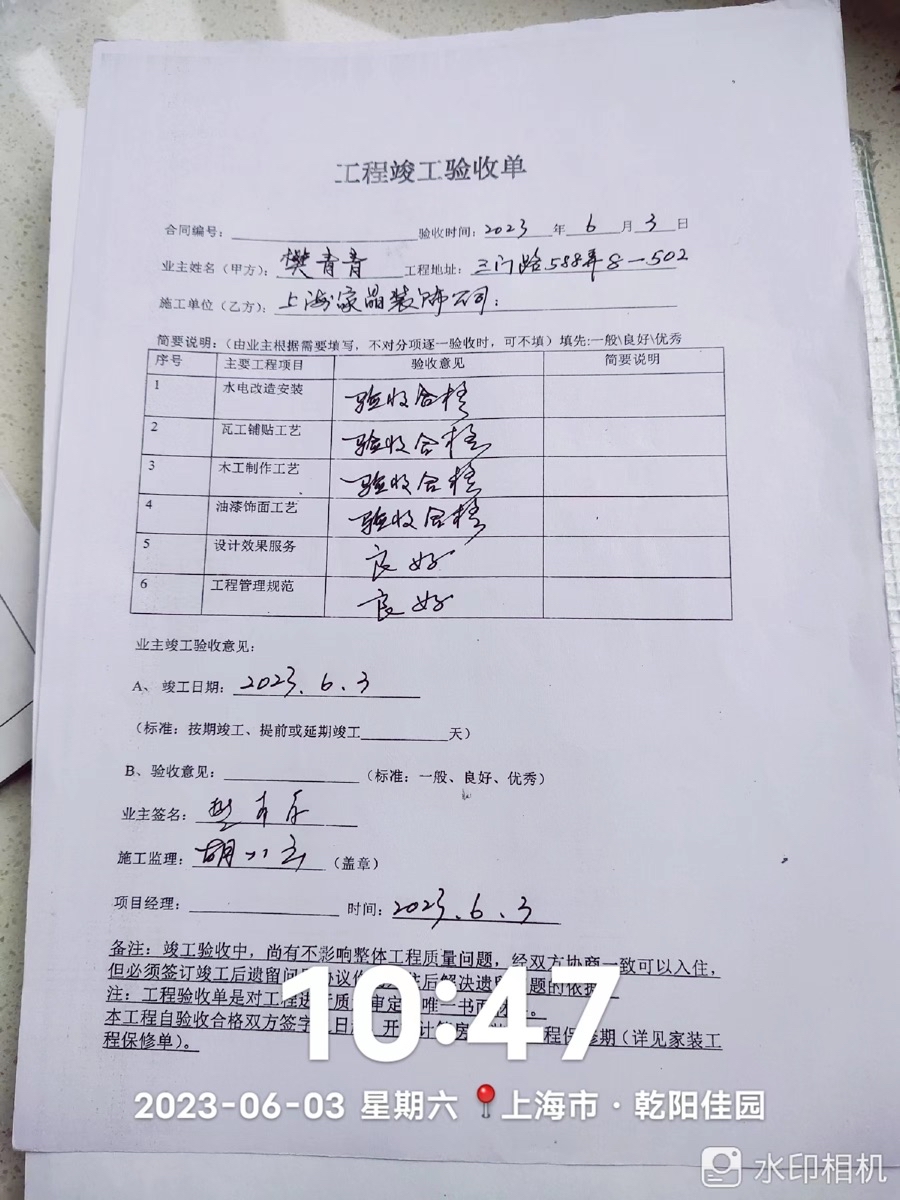 工程竣工验收单
合同编号： 验收时间：2023 年 6 月 3 日
业主姓名（甲方）：樊青青 工程地址：三门路588弄8-502
施工单位（乙方）：上海家晶装饰公司：
简要说明：（由业主根据需要填写，不对分项逐一验收时，可不填）填先:一般\良好\优秀
序号 主要工程项目 验收意见 简要说明
1 水电改造安装 验收合格
2 瓦工铺贴工艺 验收合格
3 木工制作工艺 验收合格
4 油漆饰面工艺 验收合格
5 设计效果服务 良好
6 工程管理规范 良好
业主竣工验收意见：
A、 竣工日期：2023.6.3
（标准：按期竣工、提前或延期竣工 天）
B、验收意见： （标准：一般、良好、优秀）
业主签名：
施工监理：胡 （盖章）
项目经理： 时间：2023.6.3
备注：竣工验收中，尚有不影响整体工程质量问题，经双方协商一致可以入住，
但必须签订竣工后遗留问 协议 后解决遗留 题的依据。
注：工程验收单是对工程进行质 审定 唯一书面
本工程自验收合格双方签字 日 开 计 房 程保修期（详见家装工
程保修单）。
10:47
2023-06-03 星期六 上海市·乾阳佳园
水印相机